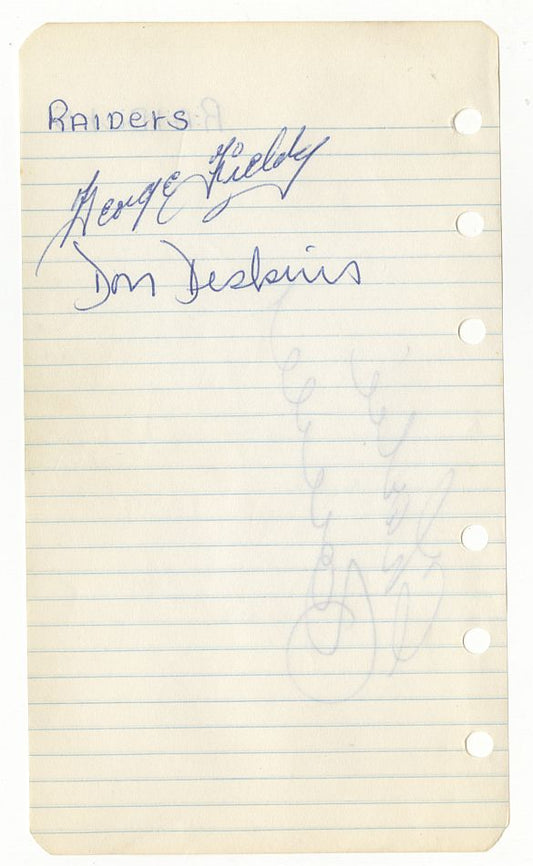 RAIDerS
George Fields
Don Deskins